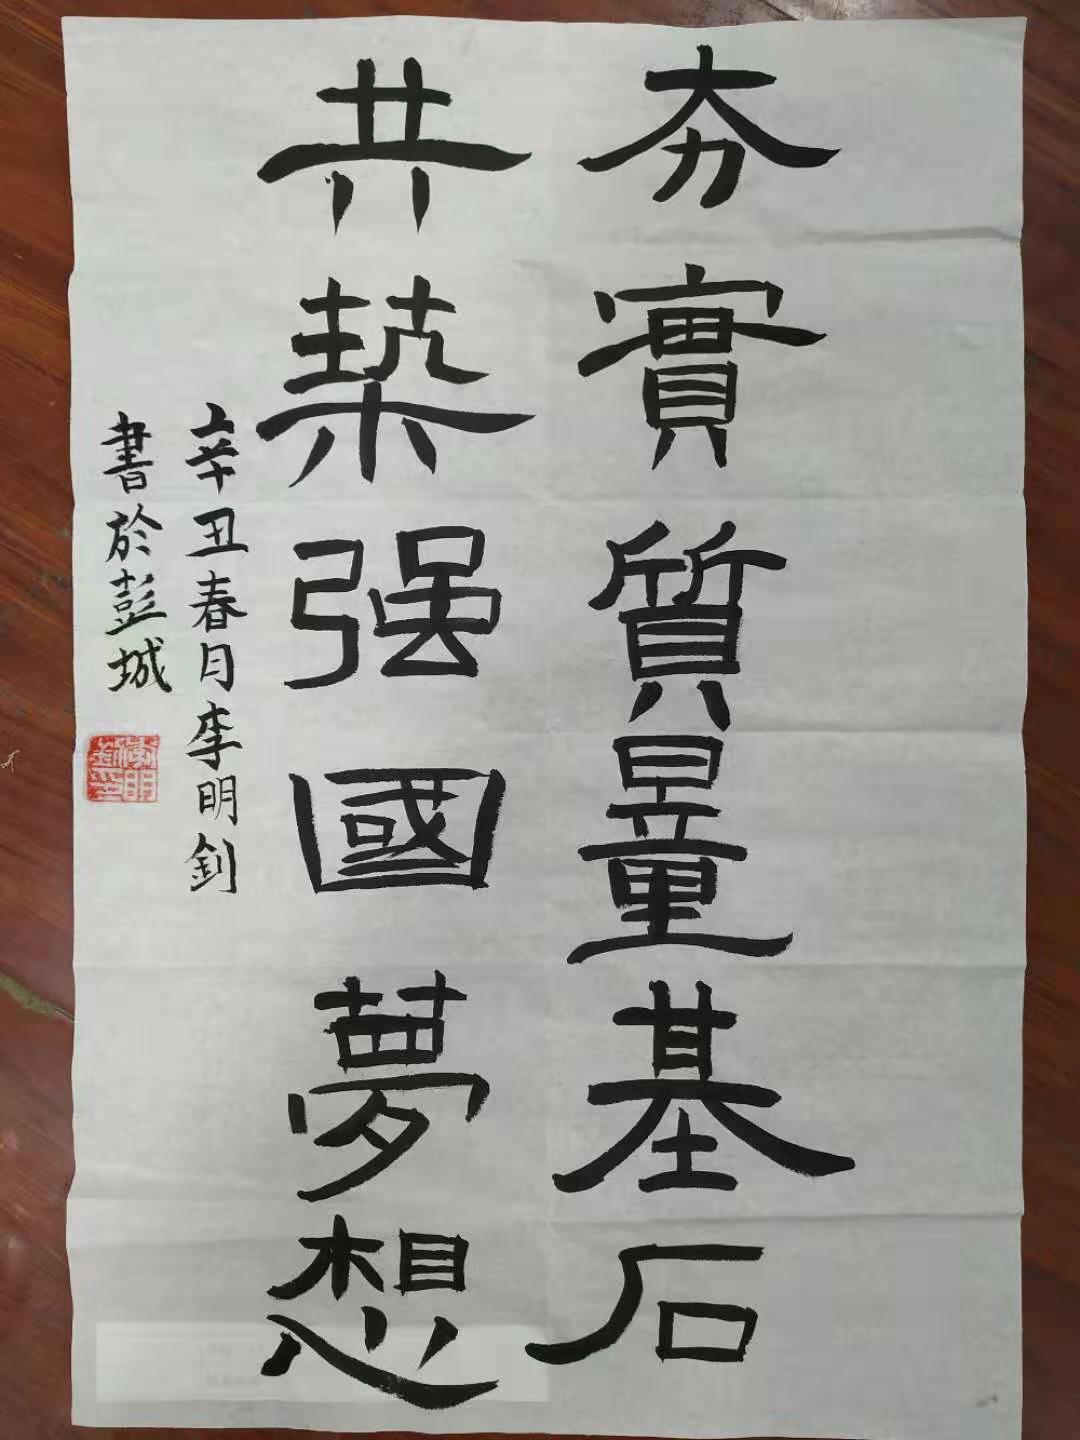 夯實質量基石
共築强國夢想
辛丑春月李明釗
書於彭城